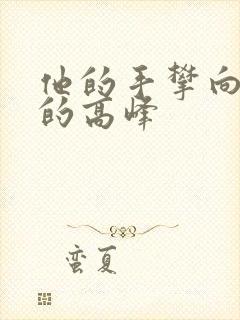 他的手攀向
的高峰
蛮夏